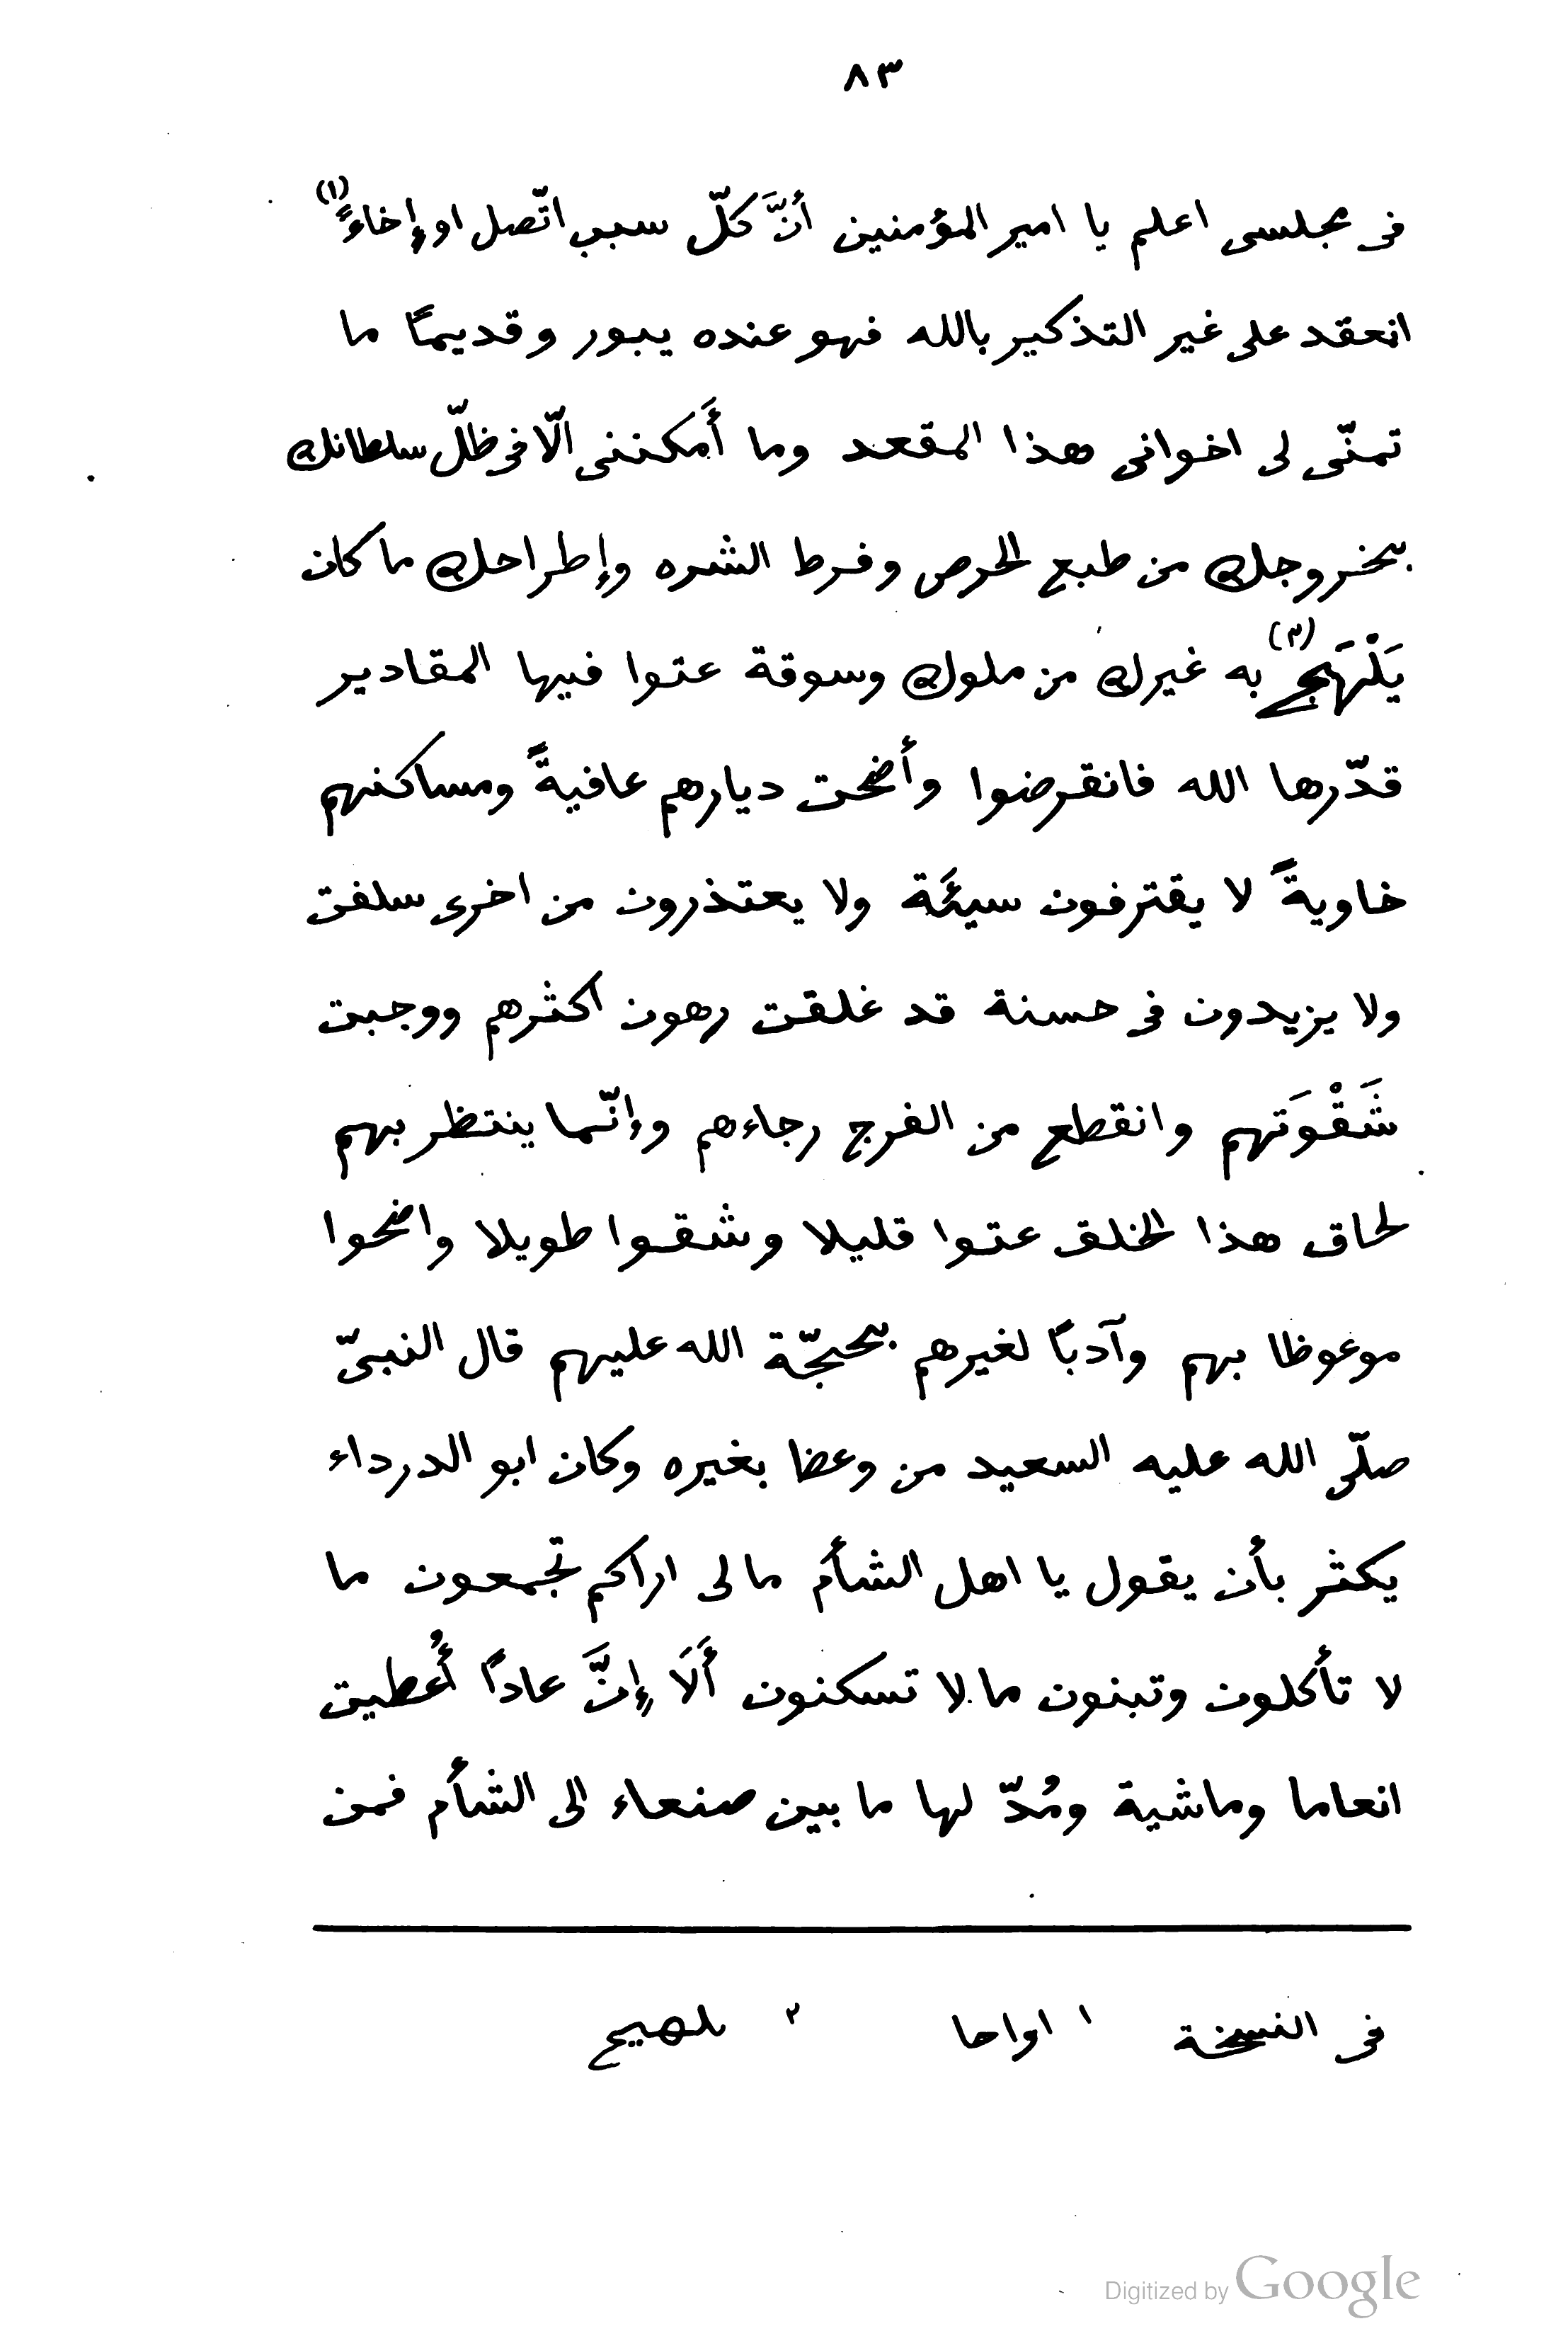 ٨٣
فى مجلسى اعلم يا امير المؤمنين أنَّ كلّ سبب اتّصل او إخاءً (١)
انعقد على غير التذكير بالله فهو عنده يبور وقديمًا ما
تمنّى لى اخوانى هذا المقعد وما أَمكننى الّا فى ظلّ سلطانك
بخروجك من طبع الحرص وفرط الشره وإطراحك ما كان
يَلْهَج (٢) به غيرك من ملوك وسوقة عتوا فيها المقادير
قدّرها الله فانقرضوا وأضحت ديارهم عافيةً ومساكنهم
خاويةً لا يقترفون سيئَة ولا يعتذرون من اخرى سلفت
ولا يزيدون فى حسنة قد غلقت رهون اكثرهم ووجبت
شَقْوَتهم وانقطع من الفرج رجاءهم وإنّما ينتظر بهم
لحاق هذا الخلق عتوا قليلا وشقوا طويلا واضحوا
موعوظا بهم وآدبًا لغيرهم بحجّة الله عليهم قال النبىّ
صلّى الله عليه السعيد من وعضا بغيره وكان ابو الدرداء
يكثر بأن يقول يا اهل الشأم ما لى اراكم تجمعون ما
لا تأكلون وتبنون ما لا تسكنون أَلَا إِنَّ عادًا أُعطيت
انعاما وماشية ومُدّ لها ما بين صنعاء الى الشأم فمن
فى النسخة ١ اواحا ٢ ىلهىج
Digitized by Google